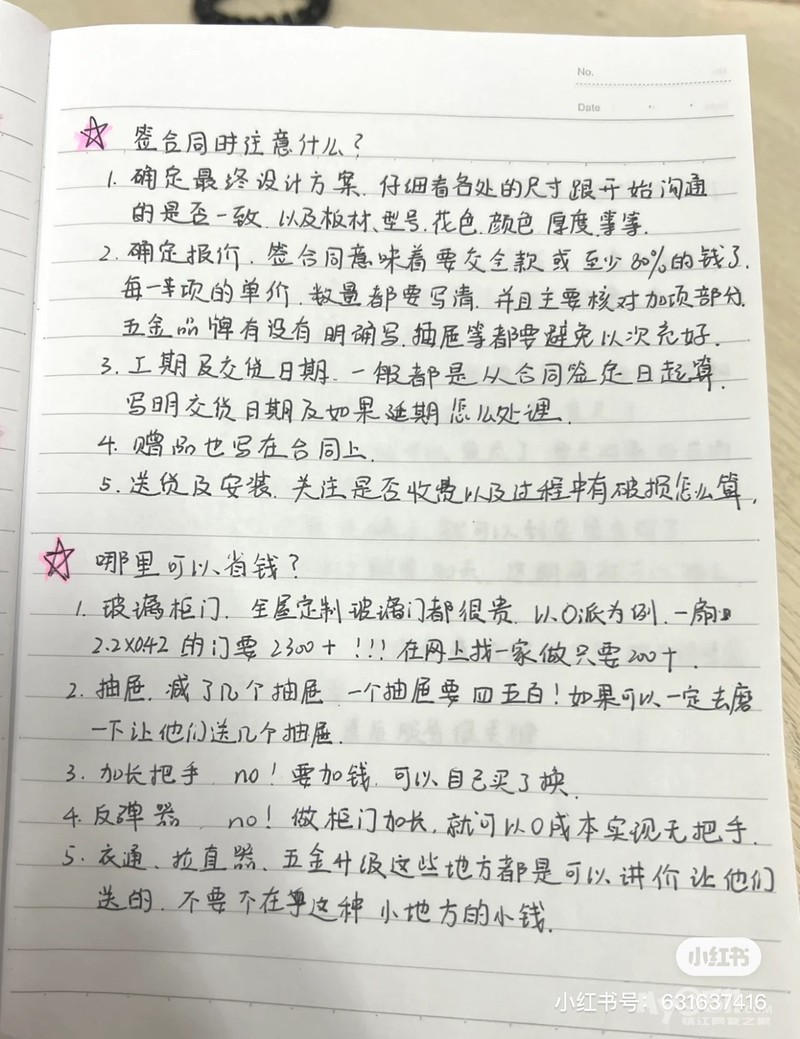 No.
Date
☆ 签合同时注意什么?
1. 确定最终设计方案.仔细看各处的尺寸跟开始沟通
的是否一致.以及板材、型号.花色.颜色.厚度.等等.
2. 确定报价.签合同意味着要交全款或至少80%的钱了.
每一项的单价.数量都要写清.并且主要核对加项部分.
五金品牌有没有明确写.抽屉等都要避免以次充好.
3. 工期及交货日期.一般都是从合同签定日起算.
写明交货日期及如果延期怎么处理.
4. 赠品也写在合同上.
5. 送货及安装.关注是否收费以及过程中有破损怎么算.
☆ 哪里可以省钱?
1. 玻璃柜门.全屋定制玻璃门都很贵.以O派为例.一扇
2.2×0.42的门要2300+!!!在网上找一家做只要200+.
2. 抽屉.减了几个抽屉.一个抽屉要四五百!如果可以一定去磨
一下让他们送几个抽屉.
3. 加长把手 no!要加钱.可以自己买了换.
4. 反弹器 no!做柜门加长.就可以0成本实现无把手.
5. 衣通、拉直器、五金升级这些地方都是可以讲价让他们
送的.不要不在乎这种小地方的小钱.
小红书
小红书号:631637416